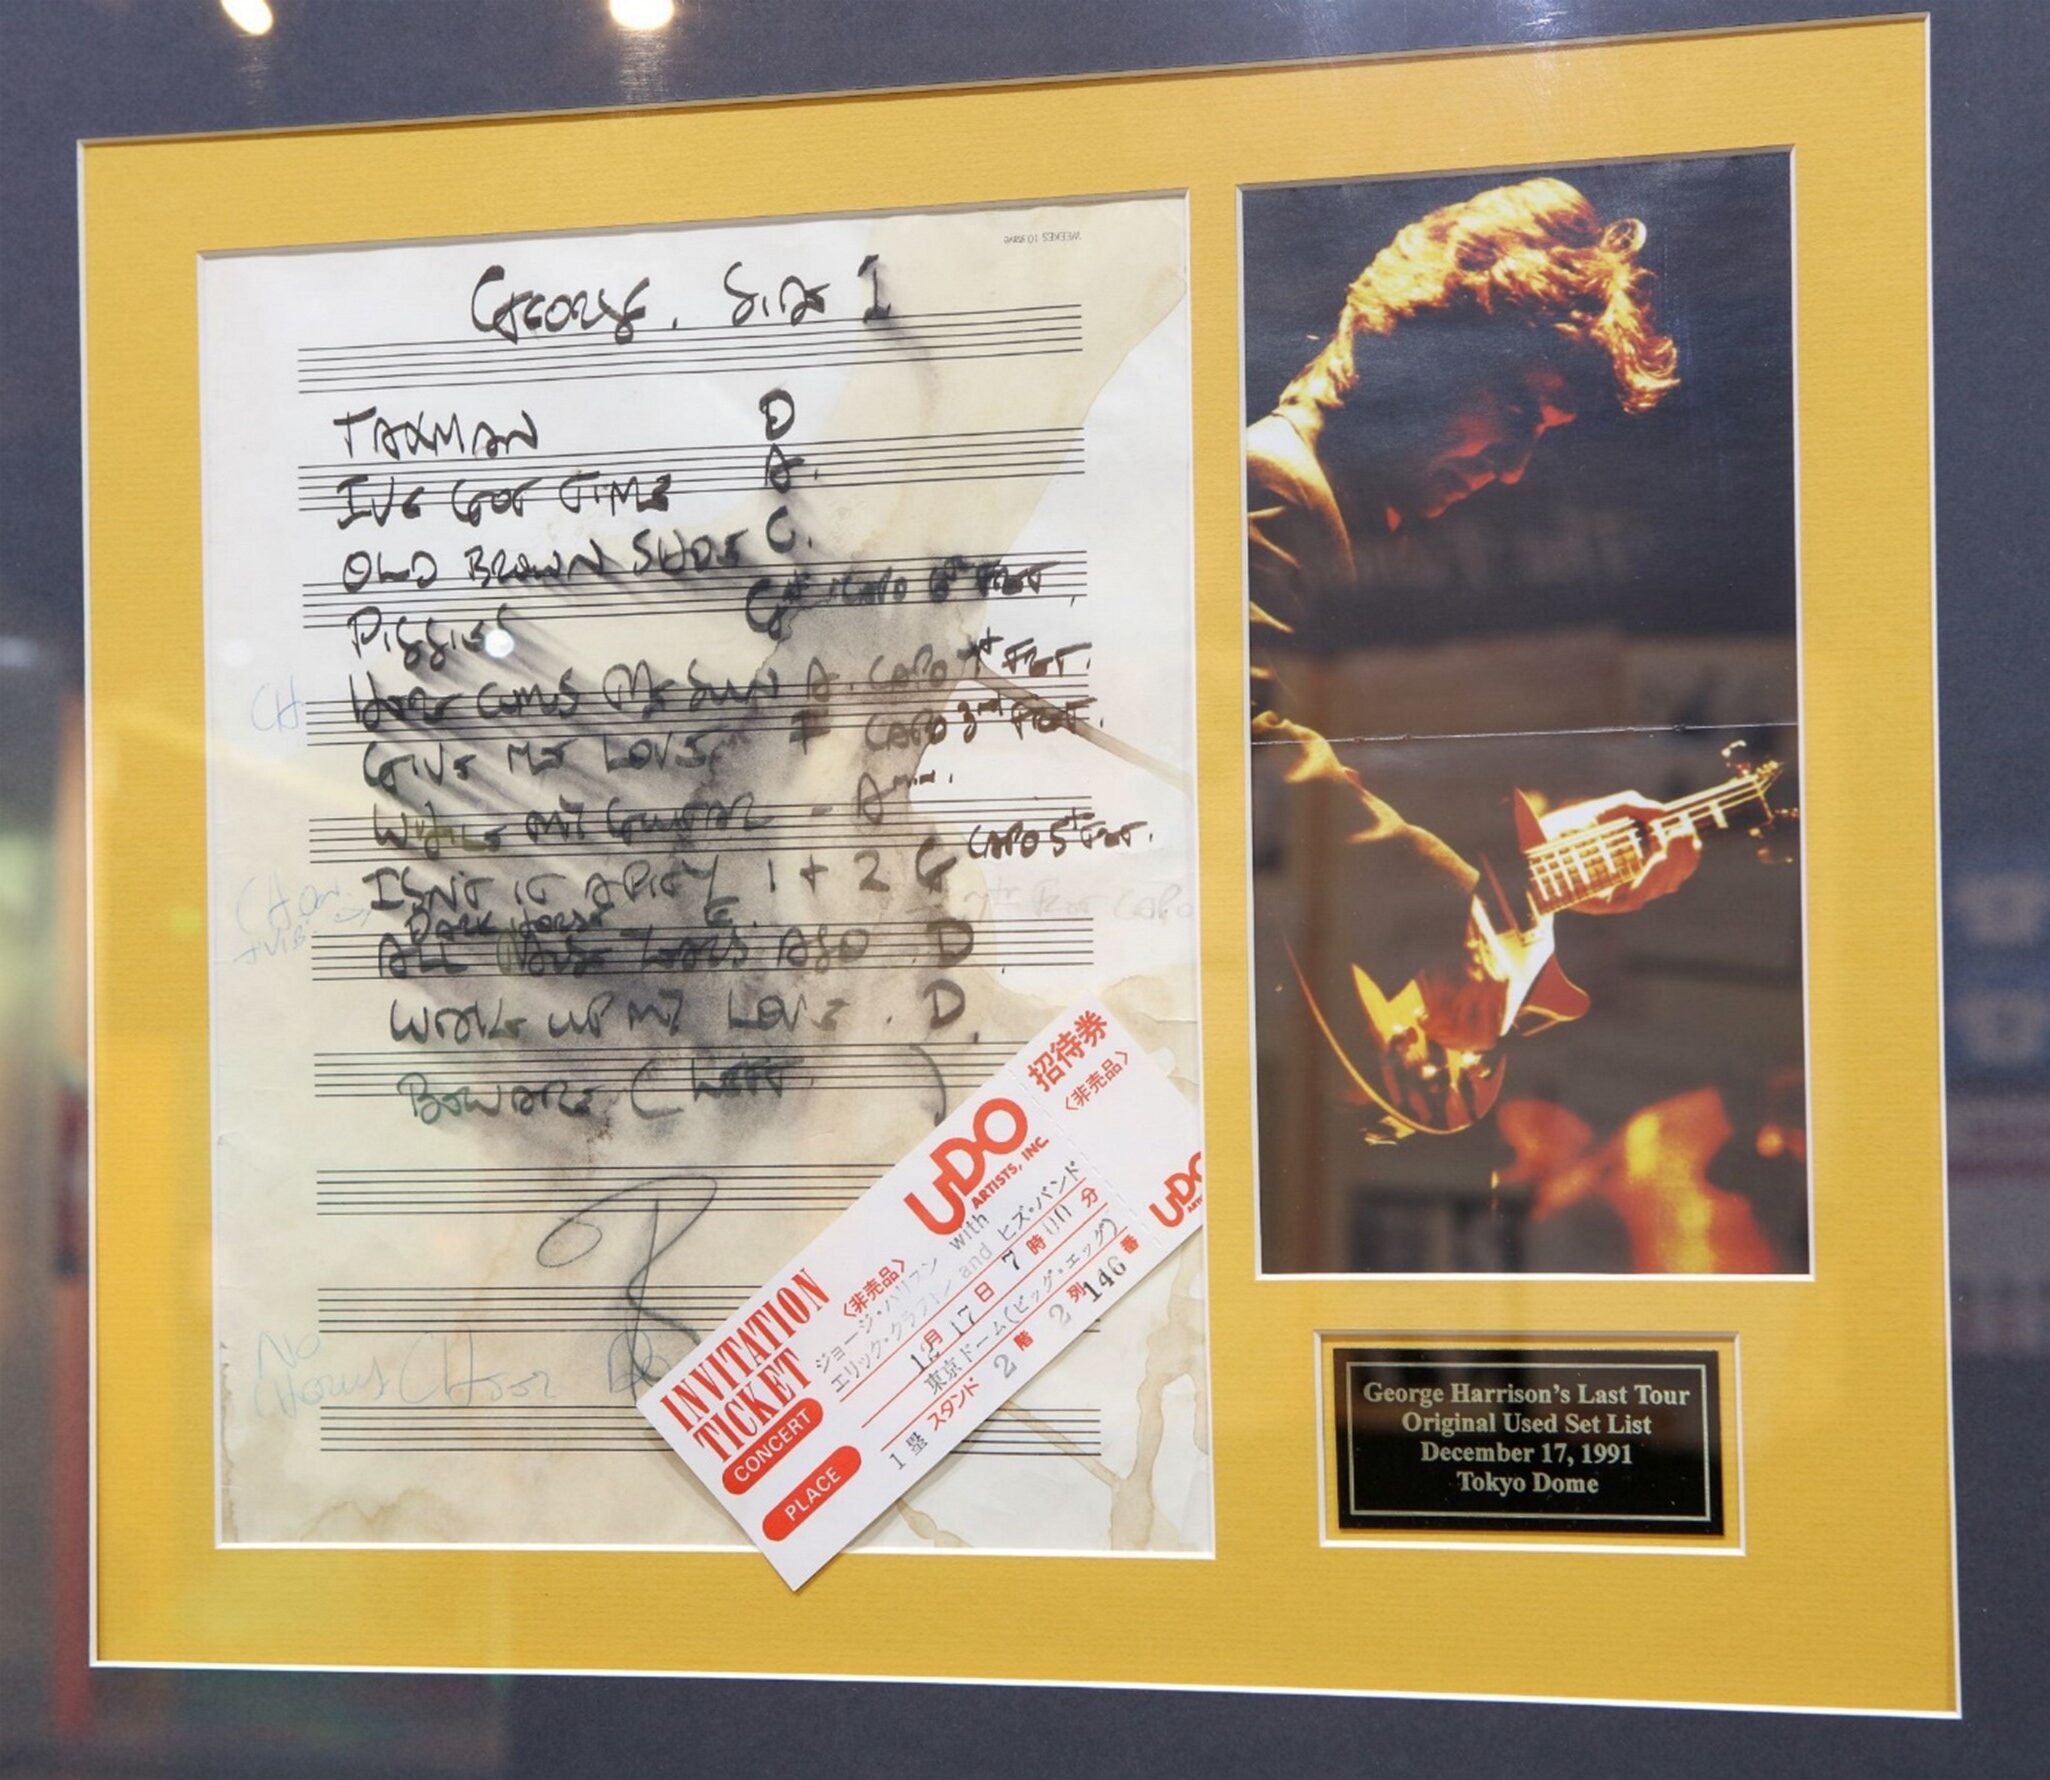 GEORGE. SIDE I
TAXMAN D
I'VE GOT TIME A.
OLD BROWN SHOE C.
PIGGIES CAPO 6th FRET.
HERE COMES THE SUN A. CAPO FRET.
CH
GIVE ME LOVE F CAPO 3rd FRET.
WHILE MY GUITAR - A min.
ISN'T IT A PITY 1 + 2 G CAPO 5th FRET.
DARK HORSE
ALL YEARS AGO D
WAKE UP MY LOVE. D.
BEWARE ( )
NO
CHORUS
UDO
ARTISTS, INC.
招待券
〈非売品〉
UDO
INVITATION
TICKET
〈非売品〉
CONCERT
ジョージ・ハリスン with
エリック・クラプトン and ヒズ・バンド
12月 17日 7時00分
PLACE
東京ドーム(ビッグ・エッグ)
1塁 スタンド 2階 2列 146番
George Harrison's Last Tour
Original Used Set List
December 17, 1991
Tokyo Dome